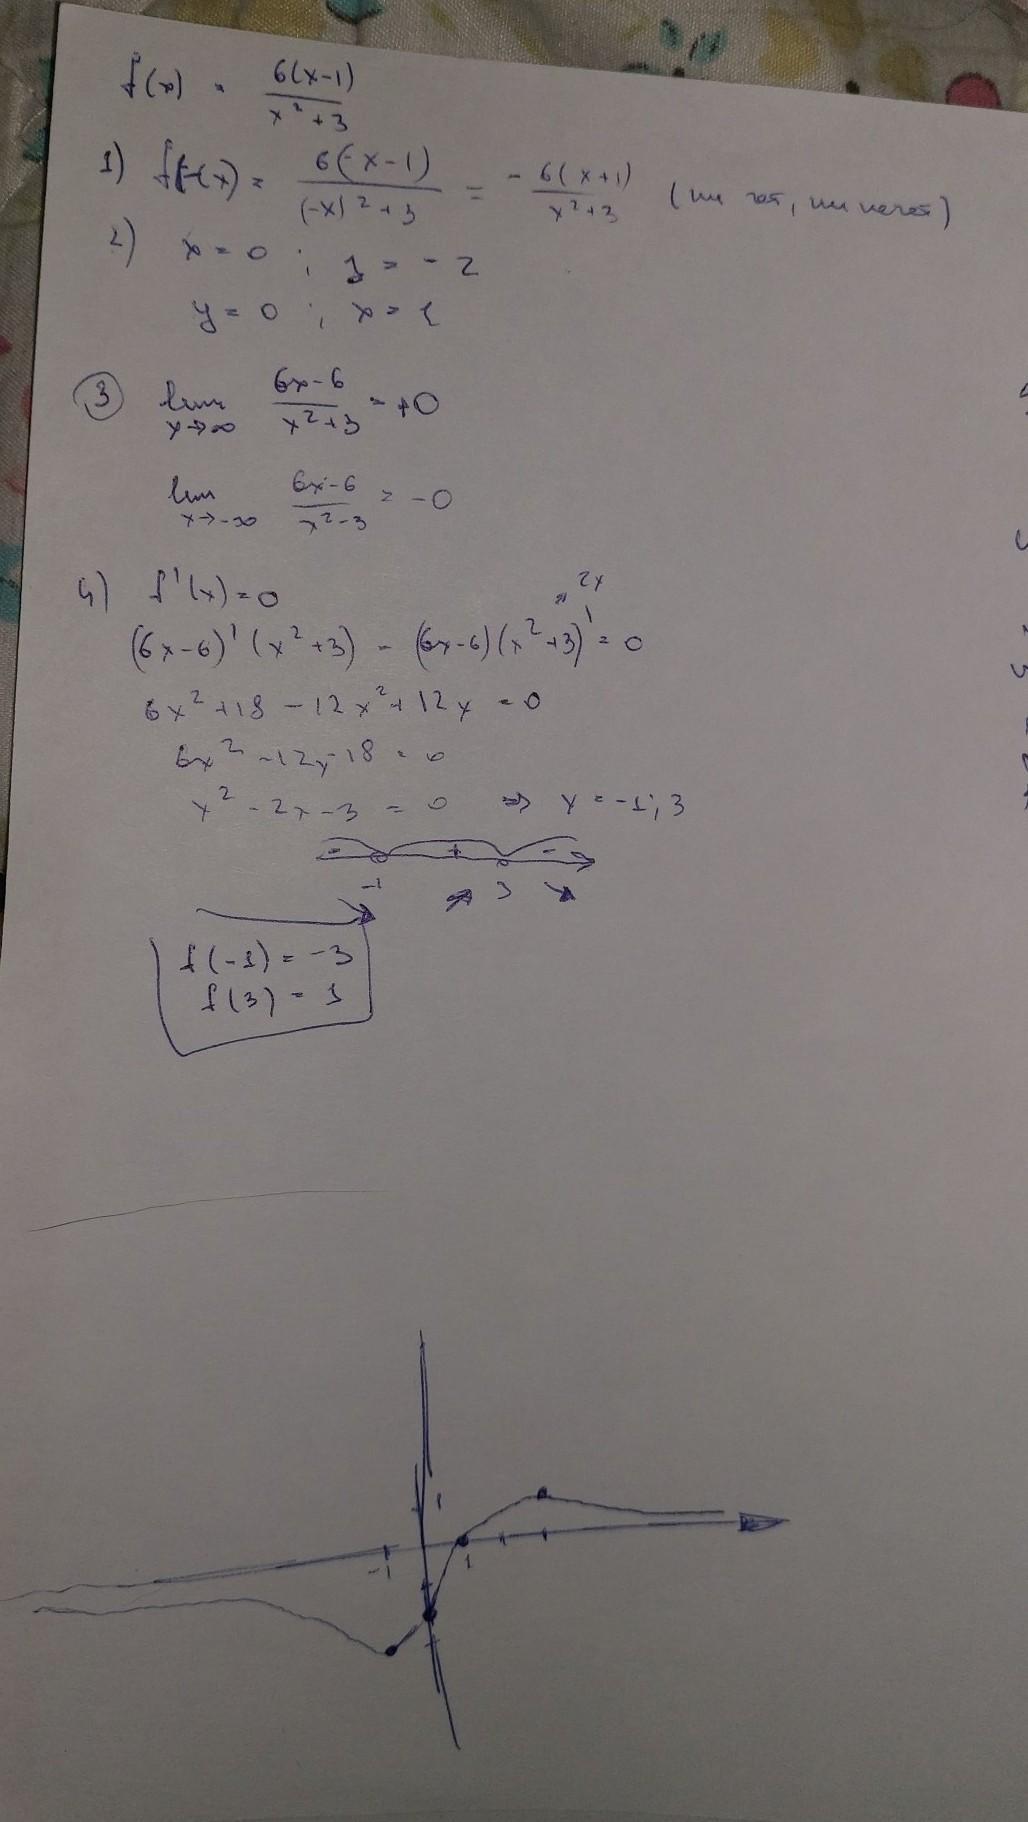 f(x) = 6(x-1) / x² + 3
1) f(-x) = 6(-x-1) / (-x)² + 3 = - 6(x+1) / x²+3 (ни чет, ни нечет)
2) x = 0 ; y = - 2
y = 0 ; x = 1
3 lim x→∞ 6x-6 / x²+3 = +0
lim x→-∞ 6x-6 / x²-3 = -0
4) f'(x) = 0
2x
(6x-6)' (x²+3) - (6x-6)(x²+3)' = 0
6x² + 18 - 12x² + 12x = 0
6x² - 12x - 18 = 0
x² - 2x - 3 = 0 ⇒ x = -1; 3
- + -
-1 3
f(-1) = -3
f(3) = 1
1
-1 1